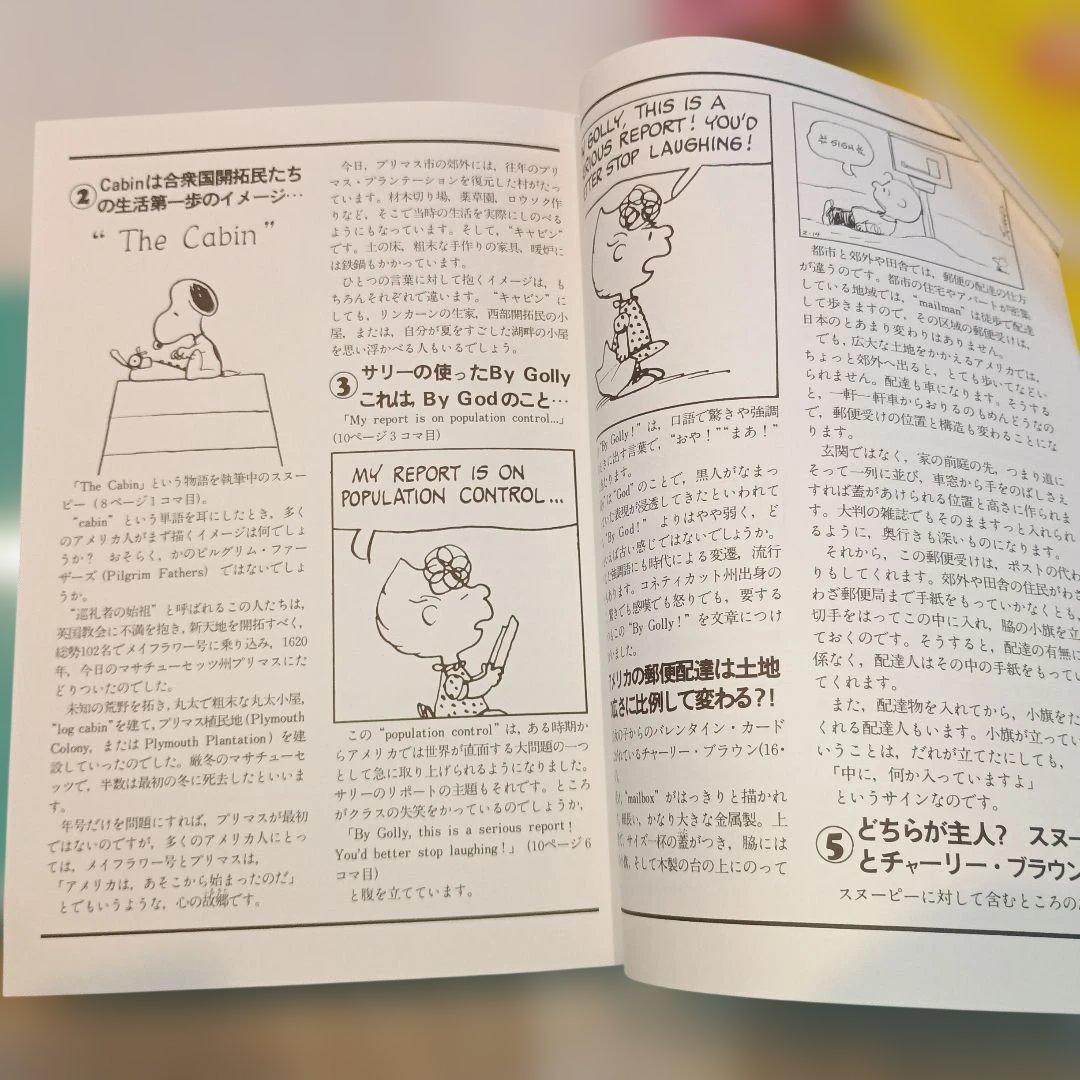 ② Cabinは合衆国開拓民たち
の生活第一歩のイメージ…
“The Cabin”
「The Cabin」という物語を執筆中のスヌー
ピー（8ページ1コマ目）。
“cabin” という単語を耳にしたとき，多く
のアメリカ人がまず描くイメージは何でしょ
うか？ おそらく，かのピルグリム・ファー
ザーズ (Pilgrim Fathers) ではないでしょ
うか。
“巡礼者の始祖” と呼ばれるこの人たちは，
英国教会に不満を抱き，新天地を開拓すべく，
総勢102名でメイフラワー号に乗り込み，1620
年，今日のマサチューセッツ州プリマスにた
どりついたのでした。
未知の荒野を拓き，丸太で粗末な丸太小屋，
“log cabin”を建て，プリマス植民地(Plymouth
Colony, または Plymouth Plantation) を建
設していったのでした。厳冬のマサチューセ
ッツで，半数は最初の冬に死去したといいま
す。
年号だけを問題にすれば，プリマスが最初
ではないのですが，多くのアメリカ人にとっ
ては，メイフラワー号とプリマスは，
「アメリカは，あそこから始まったのだ」
とでもいうような，心の故郷です。
今日，プリマス市の郊外には，往年のプリ
マス・プランテーションを復元した村がたっ
ています。材木切り場，薬草園，ロウソク作
りなど，そこで当時の生活を実際にしのべる
ようにもなっています。そして，“キャビン”
です。土の床，粗末な手作りの家具，暖炉に
は鉄鍋もかかっています。
ひとつの言葉に対して抱くイメージは，も
ちろんそれぞれで違います。“キャビン” に
しても，リンカーンの生家，西部開拓民の小
屋，または，自分が夏をすごした湖畔の小屋
を思い浮かべる人もいるでしょう。
③ サリーの使ったBy Golly
これは，By Godのこと…
「My report is on population control...」
(10ページ3コマ目)
MY REPORT IS ON
POPULATION CONTROL...
この “population control” は，ある時期か
らアメリカでは世界が直面する大問題の一つ
として急に取り上げられるようになりました。
サリーのリポートの主題もそれです。ところ
がクラスの失笑をかっているのでしょうか，
「By Golly, this is a serious report!
You'd better stop laughing!」(10ページ6
コマ目)
と腹を立てています。
GOLLY, THIS IS A
REPORT! YOU'D
STOP LAUGHING!
“By Golly!” は，口語で驚きや強調
に出す言葉で，“おや！”“まあ！”
たります。
は “God” のことで，黒人がなまっ
た表現が浸透してきたといわれて
“By God!” よりはやや弱く，ど
えば古い感じではないでしょうか。
強調語にも時代による変遷，流行
あります。コネティカット州出身の
驚きでも感嘆でも怒りでも，要する
この “By Golly!” を文章につけ
いました。
メリカの郵便配達は土地
広さに比例して変わる?!
の子からのバレンタイン・カード
れているチャーリー・ブラウン(16・
“mailbox” がはっきりと描かれ
かなり大きな金属製。上
サイズ一杯の蓋がつき，脇には
そして木製の台の上にのって
SIGH
2-14
都市と郊外や田舎では，郵便の配達の仕方
が違うのです。都市の住宅やアパートが密集
している地域では，“mailman” は徒歩で配達
して歩きますので，その区域の郵便受けは，
日本のとあまり変わりはありません。
でも，広大な土地をかかえるアメリカでは，
ちょっと郊外へ出ると，とても歩いてなどい
られません。配達も車になります。そうする
と，一軒一軒車からおりるのもめんどうなの
で，郵便受けの位置と構造も変わることにな
ります。
玄関ではなく，家の前庭の先，つまり道に
そって一列に並び，車窓から手をのばしさえ
すれば蓋があけられる位置と高さに作られま
す。大判の雑誌でもそのまますっと入れられ
るように，奥行きも深いものになります。
それから，この郵便受けは，ポストの代わ
りもしてくれます。郊外や田舎の住民がわざ
わざ郵便局まで手紙をもっていかなくとも，
切手をはってこの中に入れ，脇の小旗を立
ておくのです。そうすると，配達の有無に
係なく，配達人はその中の手紙をもってい
てくれます。
また，配達物を入れてから，小旗をた
くれる配達人もいます。小旗が立ってい
いうことは，だれが立てたにしても，
「中に，何か入っていますよ」
というサインなのです。
⑤ どちらが主人？ スヌー
とチャーリー・ブラウン
スヌーピーに対して含むところの